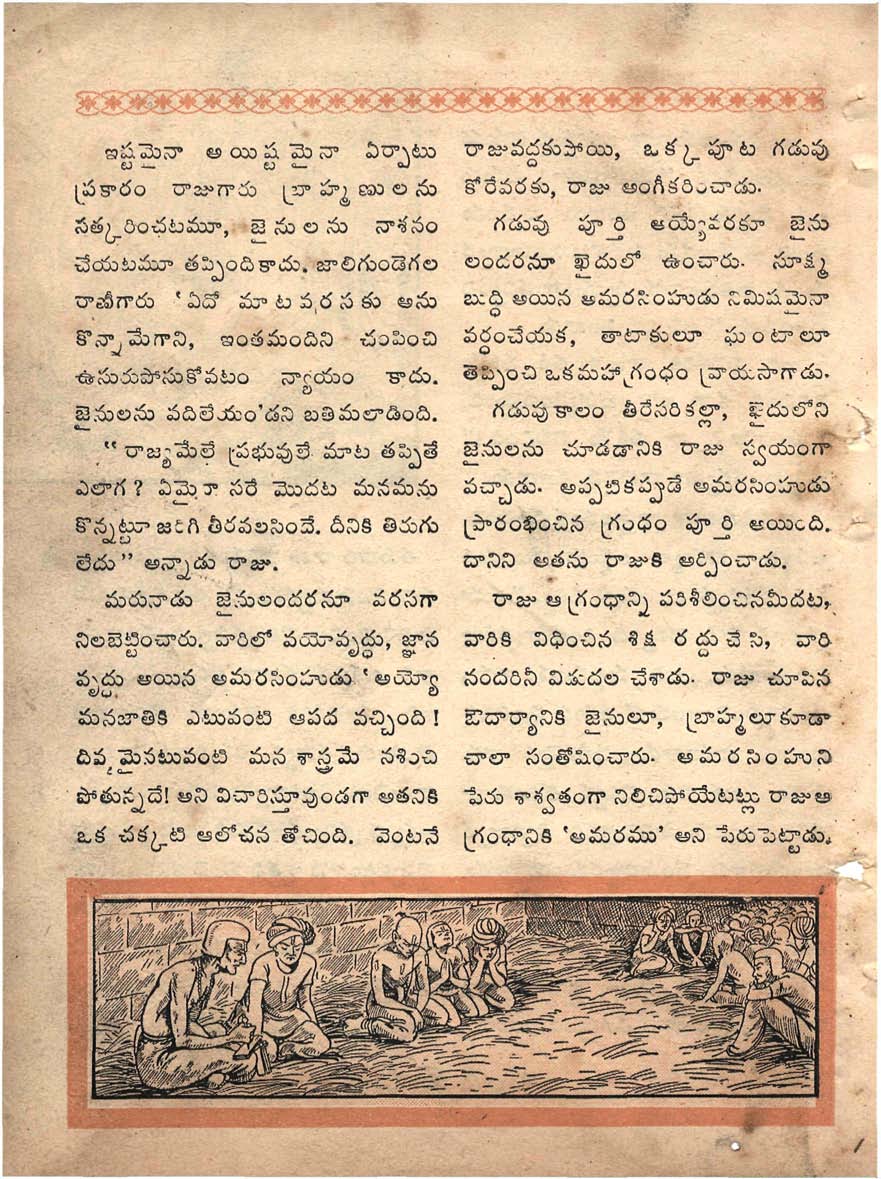 ఇష్టమైనా అయిష్టమైనా ఏర్పాటు
ప్రకారం రాజుగారు బ్రాహ్మణులను
సత్కరించటమూ, జైనులను నాశనం
చేయటమూ తప్పిందికాదు. జాలిగుండెగల
రాణీగారు 'ఏదో మాటవరసకు అను
కొన్నామేగాని, ఇంతమందిని చంపించి
ఉసురుపోసుకోవటం న్యాయం కాదు.
జైనులను వదిలేయం'డని బతిమలాడింది.
"రాజ్యమేలే ప్రభువులే మాట తప్పితే
ఎలాగ? ఏమైనా సరే మొదట మనమను
కొన్నట్టూ జరిగి తీరవలసిందే. దీనికి తిరుగు
లేదు" అన్నాడు రాజు.
మరునాడు జైనులందరనూ వరసగా
నిలబెట్టించారు. వారిలో వయోవృద్ధు, జ్ఞాన
వృద్ధు అయిన అమరసింహుడు 'అయ్యో
మనజాతికి ఎటువంటి ఆపద వచ్చింది!
దివ్యమైనటువంటి మన శాస్త్రమే నశించి
పోతున్నదే! అని విచారిస్తూవుండగా అతనికి
ఒక చక్కటి ఆలోచన తోచింది. వెంటనే
రాజువద్దకుపోయి, ఒక్క పూట గడువు
కోరేవరకు, రాజు అంగీకరించాడు.
గడువు పూర్తి అయ్యేవరకూ జైను
లందరనూ ఖైదులో ఉంచారు. సూక్ష్మ
బుద్ధి అయిన అమరసింహుడు నిమిషమైనా
వర్థంచేయక, తాటాకులూ ఘంటాలూ
తెప్పించి ఒకమహాగ్రంధం వ్రాయసాగాడు.
గడువుకాలం తీరేసరికల్లా, ఖైదులోని
జైనులను చూడడానికి రాజు స్వయంగా
వచ్చాడు. అప్పటికప్పుడే అమరసింహుడు
ప్రారంభించిన గ్రంధం పూర్తి అయింది.
దానిని అతను రాజుకి అర్పించాడు.
రాజు ఆ గ్రంధాన్ని పరిశీలించినమీదట,
వారికి విధించిన శిక్ష రద్దుచేసి, వారి
నందరినీ విడుదల చేశాడు. రాజు చూపిన
ఔదార్యానికి జైనులూ, బ్రాహ్మలూకూడా
చాలా సంతోషించారు. అమరసింహుని
పేరు శాశ్వతంగా నిలిచిపోయేటట్లు రాజు ఆ
గ్రంధానికి 'అమరము' అని పేరుపెట్టాడు.